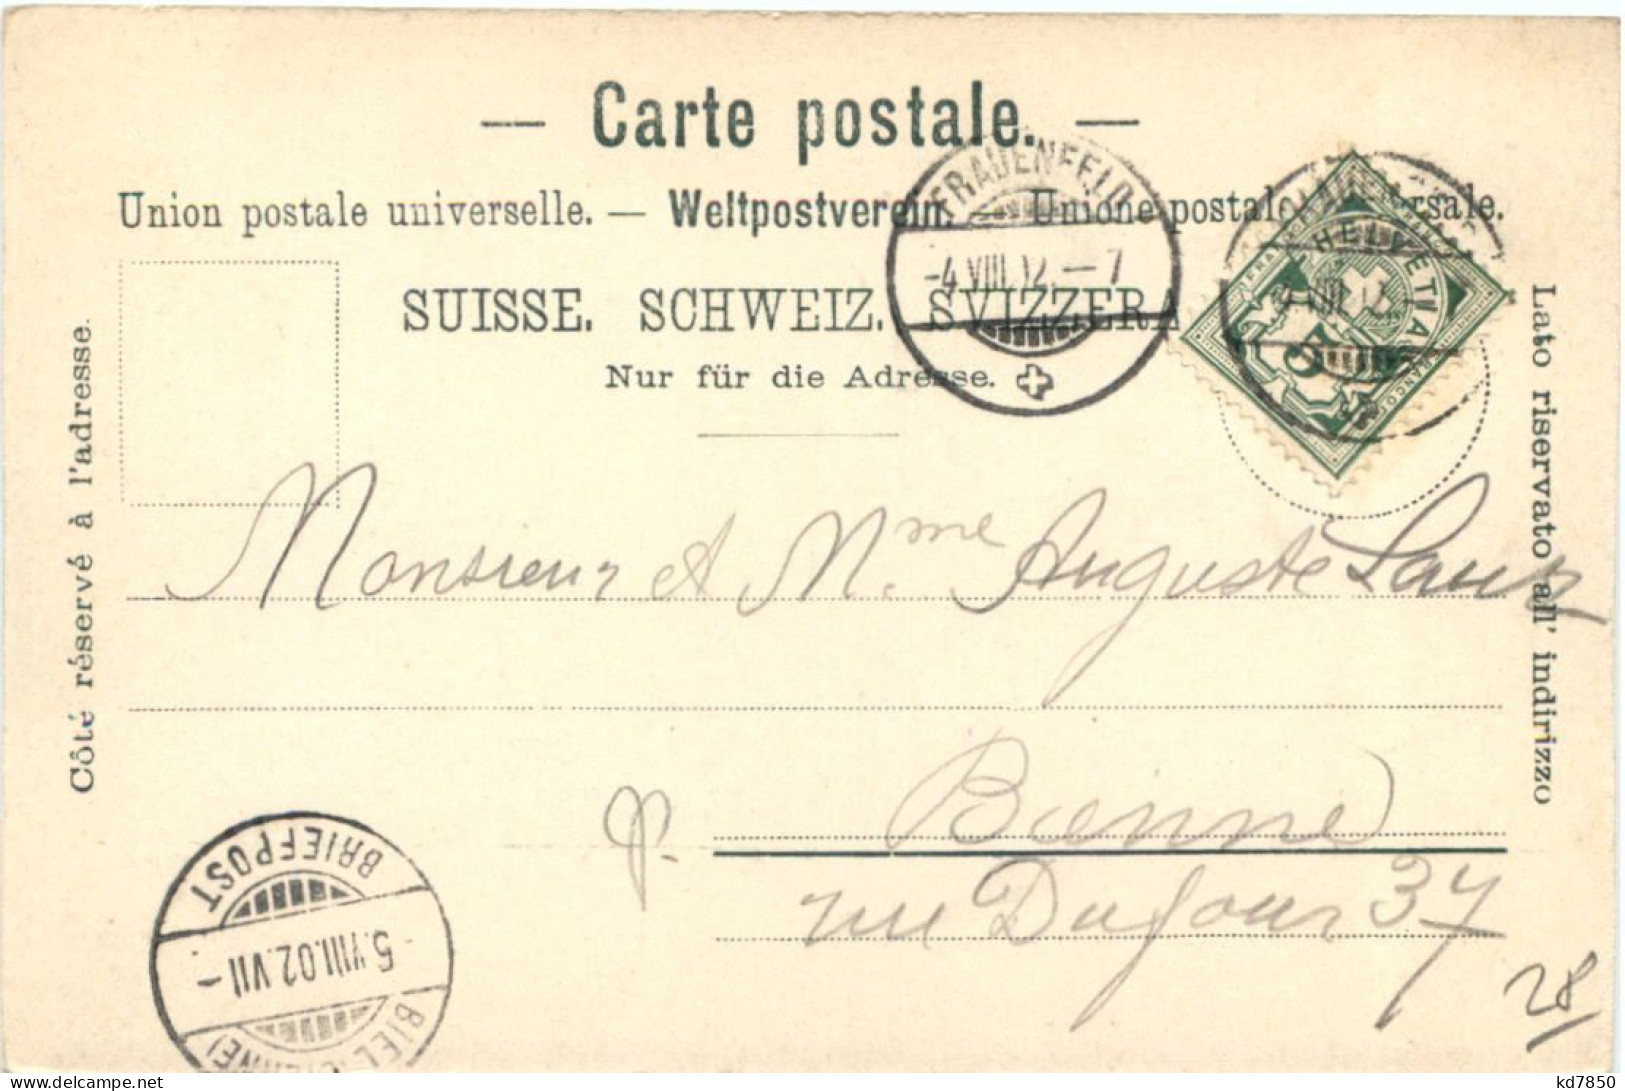 — Carte postale. —
Union postale universelle. — Weltpostverein. — Unione postale universale.
SUISSE. SCHWEIZ. SVIZZERA
Nur für die Adresse.
Côté réservé à l'adresse.
Lato riservato all' indirizzo
FRAUENFELD
-4.VIII.02.-7
HELVETIA
FRANCO
5
Monsieur et Mme Auguste
Bienne
rue Dufour 37
28/
BRIEFPOST
5.VIII.02.VII-
BIEL (BIENNE)
delcampe.net
kd7850